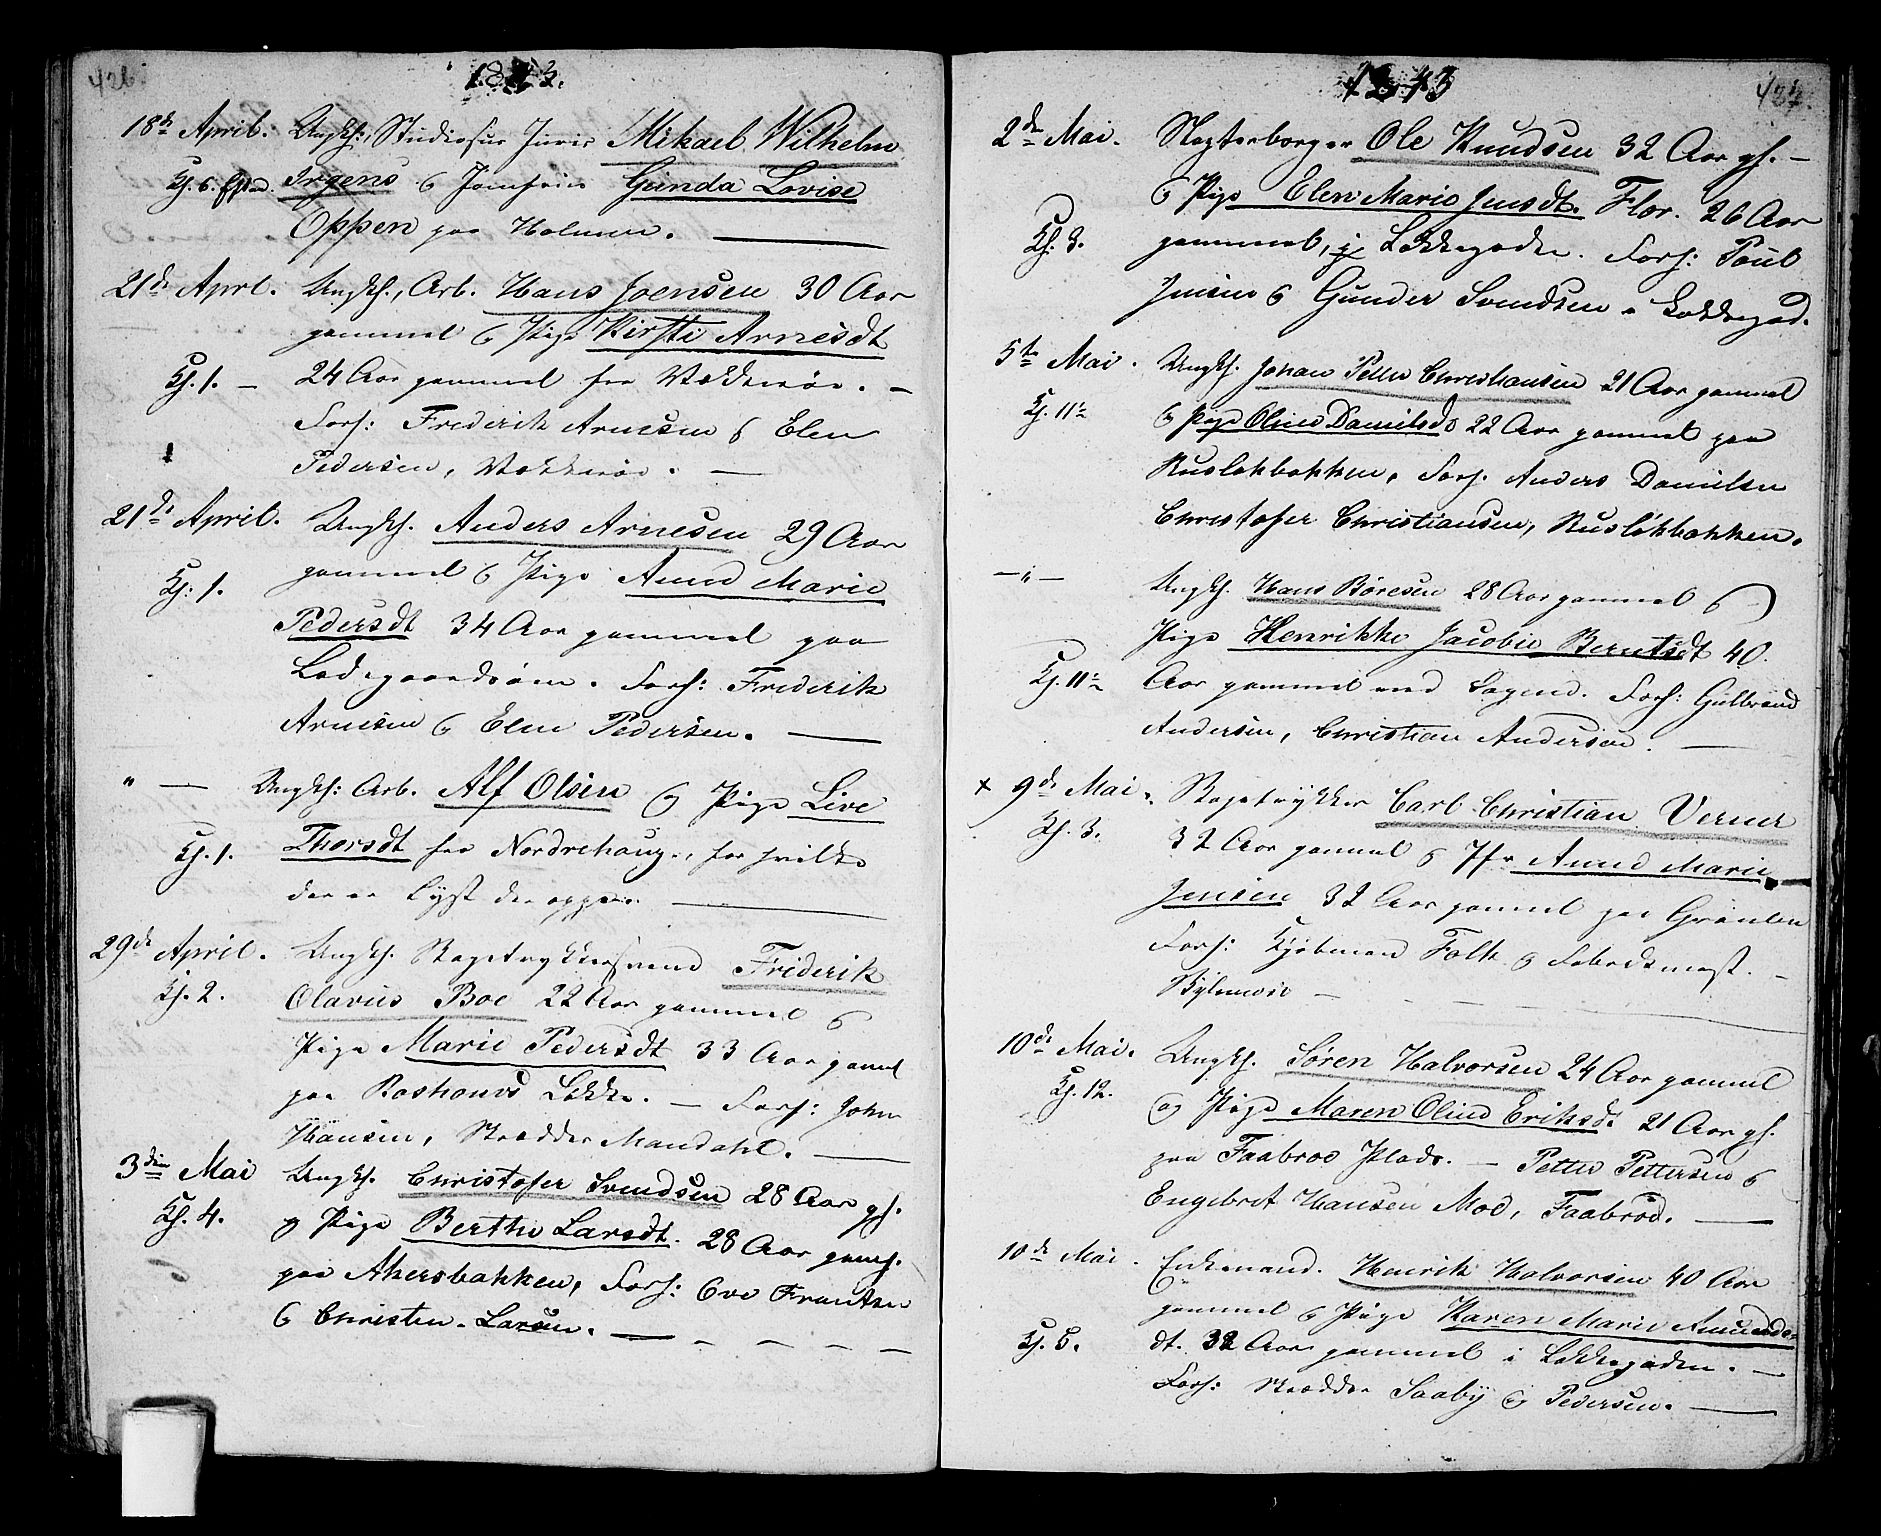 426.
1843.
18de April. Ungk: Studiosus Juris Mikael Wilhelm
Kj. 6. Irgens & Jomfrue Gunda Lovise
Oppen paa Holmen.
21de Aprl. Ungk., Arb. Hans Joensen 30 Aar
gammel & Pige Kirsti Arnesdt
Kj. 1. — 24 Aar gammel fra Vækkerøe. —
Forl: Frederik Arnesen & Elen
Pedersen, Vækkerøe. —
21de April. Ungk. Anders Arnesen 29 Aar
Kj: 1. gammel & Pige Anne Marie
Pedersdt 34 Aar gammel paa
Ladegaardsøen. Forl: Frederik
Arnesen & Elen Pedersen. —
" — Ungk: Arb. Alf Olsen & Pige Live
Kj. 1. Thorsdt fra Nordrehoug, for hvilke
der er lyst deroppe. —
29de April. Ungk. Bogtrykkersvend Friderik
Kj. 2. Olavius Boe 22 Aar gammel &
Pige Marie Pedersdt 33 Aar gamel
paa Løkke. — Forl: John
Hansen, Skrædder Mandahl. —
3die Mai Ungk. Christofer Svendsen 28 Aar gl.
Kj. 4. & Pige Berthe Larsdt. 28 Aar gaml.
paa Akersbakken, Forl: Ove Frantsen
& Christen Larsen. —
427.
1843
2de Mai. Ole Knudsen 32 Aar gl. —
& Pige Elen Marie Jensdt. Flor. 26 Aar
Kj. 3. gammel, i Løkkegaden. Forl: Poul
Jensen & Gunder Svendsen Løkkegad.
5te Mai. Ungk. Johan Petter Christiansen 21 Aar gammel
Kj. 11 & Pige Oline Danielsd 22 Aar gammel paa
Ruseløkbakken, Forl. Anders Danielsen
Christofer Christiansen, Ruseløkbakken.
— " — Ungk. Hans Børesen 28 Aar gammel &
Pige Henrikke Jacobie Berntsdt 40.
Kj. 11 Aar gammel ved Sagene. Forl: Gulbrand
Andersen, Christian Andersen. —
x 9de Mai. Bogtrykker Carl Christian Verner
Kj. 3. 32 Aar gammel & Jfr Anne Marie
Jensen 32 Aar gammel paa Grønlen
Forl: Kjøbmand Falk & Fabrikmest. —
10de Mai. Ungk. Søren Halvorsen 24 Aar gammel
Kj. 12. og Pige Maren Oline Eriksd. 21 Aar gl.
paa Faabroe Plads. — Petter Pettersen &
Engebret Hansen Moe, Faabroe. —
10de Mai. Enkemand. Henrik Halvorsen 40 Aar
gammel & Pige Karen Marie Amunds-
Kj. 5. dt. 32 Aar gammel i Løkkegaden. —
Forl: Skrædder Saaby & Pedersen. —